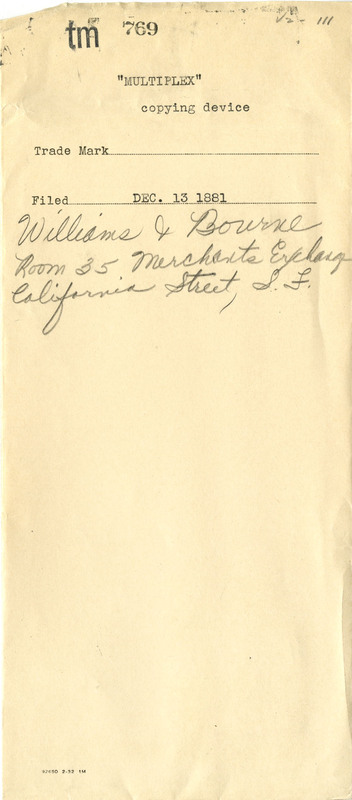 tm 769
"MULTIPLEX"
copying device
Trade Mark
Filed DEC. 13 1881
Williams & Bourne
Room 35 Merchants Exchange
California Street, S. F.